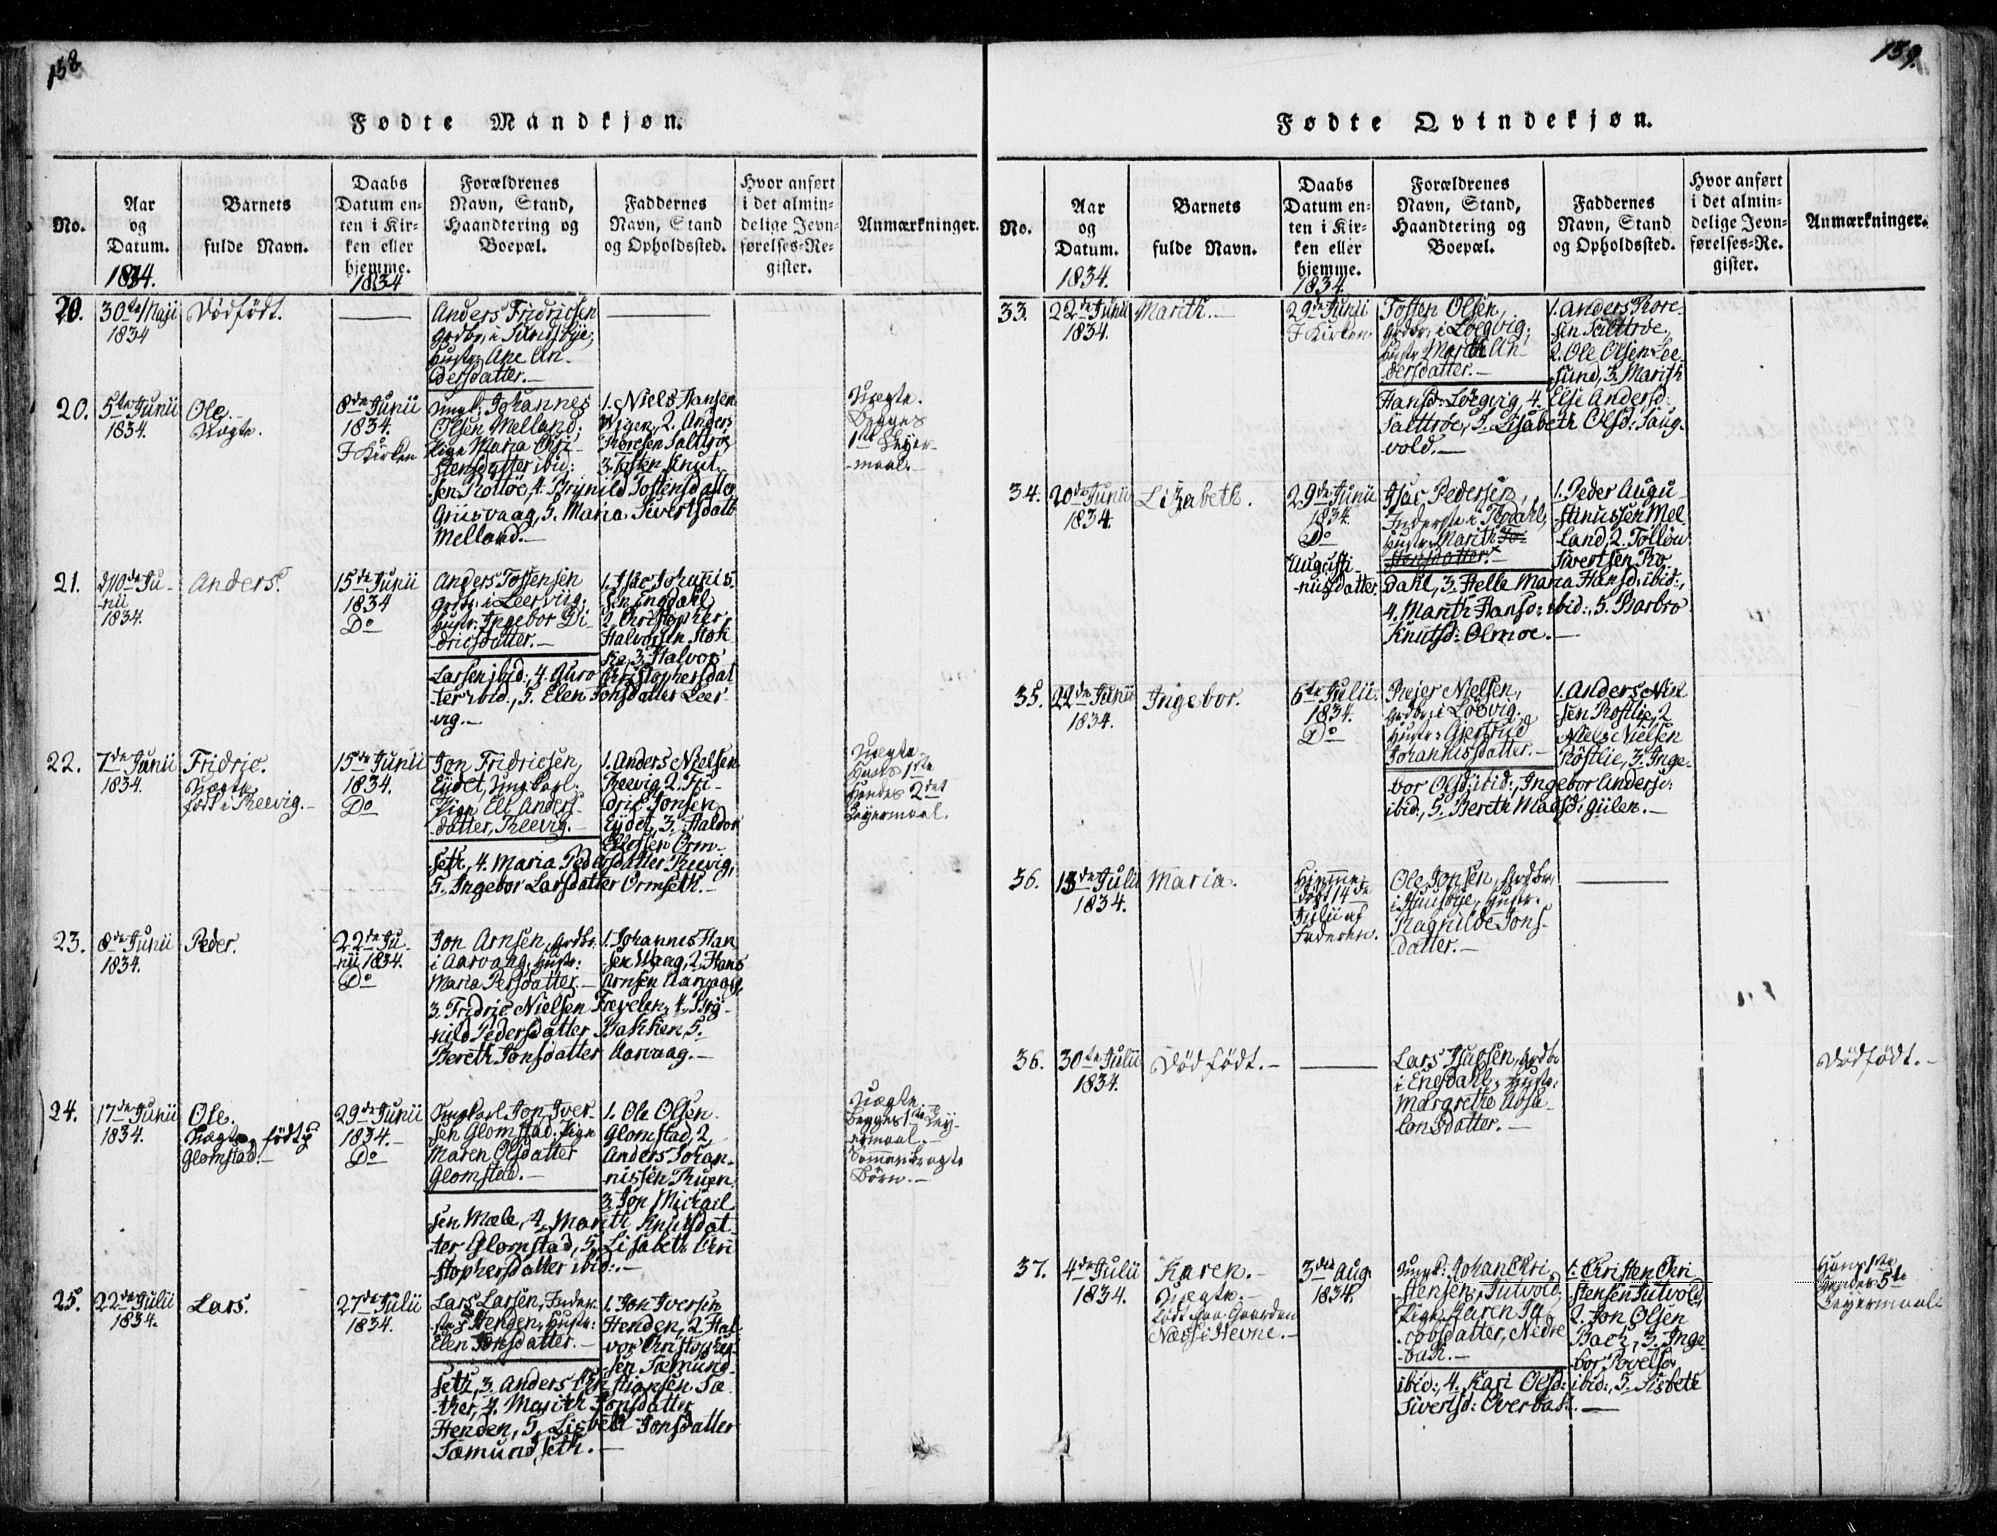 158
Fødte Mandkjøn.
No.
Aar
og
Datum.
1834.
Barnets
fulde Navn.
Daabs
Datum en-
ten i Kir-
ken eller
hjemme.
1834
Forældrenes
Navn, Stand,
Haandtering og
Boepæl.
Faddernes
Navn, Stand
og Opholdssted.
Hvor anført
i det almin-
delige Jevn-
førelses-Re-
gister.
Anmærkninger.
20.
30te Maji
1834
Dødfödt.
Anders Fridricsen
Grdbr: i
Hustr: Ane An-
dersdatter.—
20.
5te Junii
1834.
Ole.—
Uægte.
8de Junii
1834.
I Kirken
Ungk: Johannes
Olsen Melland;
Pige Maria Chri-
stensdatter ibid:
1. Niels Hansen
Wigen, 2. Anders
Thoresen Saltrøe
3. Tosten Knut-
sen Rottöe, 4. Brynild Tostensdatter
Griisvaag, 5. Maria Sivertsdatt
Melland.—
Uægte.
Begges
1ste Leyer-
-maal.—
21.
d 10de Ju-
-nii
1834.
Anders.
15de Junii
1834
Do
Anders Tostensen
Grdbr: i Leervig;
Hustr: Ingebor Di-
dricsdatter.—
1. Isac Johanis
sen Engdahl,
2. Christopher
Halvorsen Stok
ke, 3. Halvor
Larsen ibid:, 4. Guro Christophersdat
ter ibid:, 5. Elen Jonsdatter Leer-
vig.—
22.
7de Junii
1834.
Fridric.
Uægte
födt i Reevig.—
15de Junii
1834.
Do
Jon Fridricsen,
Eydet, Ungkarl.
Pige Eli Anders
datter, Reevig.—
1. Anders Nielsen
Reevig, 2. Fri-
dric Jonsen
Eydet, 3. Haldor
Ellefsen Orm-
seth, 4. Maria Pedersdatter Reevig,
5. Ingebor Larsdatter Ormseth.—
Uægte
Hans 1ste
Hendes 2det
Leyermaal.
23.
8de Junii
1834.
Peder.
22de Ju-
nii 1834.
Do
Jon Arnsen, Grdbr.
i Aarvaag, Hustr:
Maria Persdatter.—
1. Johannes Han
sen Waag, 2. Hans
Arnsen Aarvaag,
3. Fridric Nielsen Frevelen, 4. Bry-
nild Pedersdatter Bakken 5.
Bereth Jonsdatter Aarvaag.—
24.
17de Junii
1834.
Ole.
Uægte, født p
Glomstad.—
29de Junii
1834.—
Do
Ungkarl Jon Iver-
sen Glomstad. Pige
Maren Olsdatter
Glomstad.—
1. Ole Olsen
Glomstad, 2.
Anders Johan-
nissen
3. Jon Michael
sen Mæle, 4. Marith Knutsdat-
ter Glomstad, 5. Lisabeth Chri
stophersdatter ibid:.—
Uægte.
Begges 1ste Ley-
ermaal.—
Sammenbragte
Børn.—
25.
22de Julii
1834.
Lars.
27de Julii
1834.
Lars Larsen, Inder-
ste i Henden, Hustr:
Elen Jonsdatter.—
1. Jon Iversen
Henden, 2. Hal-
vor Christopher
sen Sæmund-
seth, 3. Anders Christiansen Sæ-
ther, 4. Marith Jonsdatter
Henden, 5. Lisbeth Jonsdatter
Sæmundseth.—
159.
Fødte Qvindekjøn.
No.
Aar
og
Datum.
1834.
Barnets
fulde Navn.
Daabs
Datum en-
ten i Kir-
ken eller
hjemme.
1834.
Forældrenes
Navn, Stand,
Haandtering og
Boepæl.
Faddernes
Navn, Stand
og Opholdssted.
Hvor anført
i det almin-
delige Jevn-
førelses-Re-
gister.
Anmærkninger.
33.
22de Junii
1834.
Marith.—
29de Junii
I Kirken
Tosten Olsen,
Grdbr: i Loegvig;
Hustr Marith An-
dersdatter.—
1. Anders Tore-
sen Salttrøe,
2. Ole Olsen Lee-
sund, 3. Marith
Hansd: Loegvig, 4. Elsi Andersd:
Salttrøe, 5. Lisabeth Olsd: Saug-
vold.—
34.
20de Junii
1834.
Lisabeth.
29de Junii
1834.
Do
Augusti-
nusdatter.
Isac Pedersen,
Inderste i Rodahl,
Hustr: Marith To-
stensdatter.
1. Peder Augu-
stinussen Mel-
land, 2. Tollöv
Sivertsen Ro
dahl, 3. Helle Maria Hansd: ibid:,
4. Marith Hansd: ibid:, 5. Barbro
Knutsd: Olmoe.—
35.
22de Junii
1834.
Ingebor.
6te Julii
1834.
Do
Reier Nielsen,
Grdbr: i Lösvig.
Hustr: Gjertrud
Johannisdatter.—
1. Anders Niel
sen Roslie, 2
Niels Nielsen
Röstlie, 3. Inge-
bor Olsd: ibid:, Ingebor Andersd:
ibid:, 5. Bereth Madsd: Gülen.—
36.
13de Julii
1834.
Maria.
Hjemme-
døbt 14de
Julii af
Faderen.
Ole Jonsen, Grdbr:
i Huusbye, Hustr.
Ragnilde Jons-
datter.—
36.
30te Julii
1834.
Dödfödt.—
Lars Isacsen, Grdbr
i Engdahl, Hustr:
Margrethe Absa-
lonsdatter.—
Dödfödt.—
37.
4de Julii
1834.
Karen.—
Uægte.—
födt paa Gaarden
Næss i Hevne.—
3die Aug.
1834.
Ungk: Johan Chri
stensen, Sutvold,
Pige Karen Ja-
cobsdatter, Nedre
bak.—
1. Christen Chri
stensen Sutvold,
2. Jon Olsen
Bach, 3. Inge-
bor Povelsd
ibid:, 4. Kari Olsd: ibid:, 5. Lisbeth
Sivertsd: Overbak.—
Hans 1ste
Hendes 5te
Leyermaal.